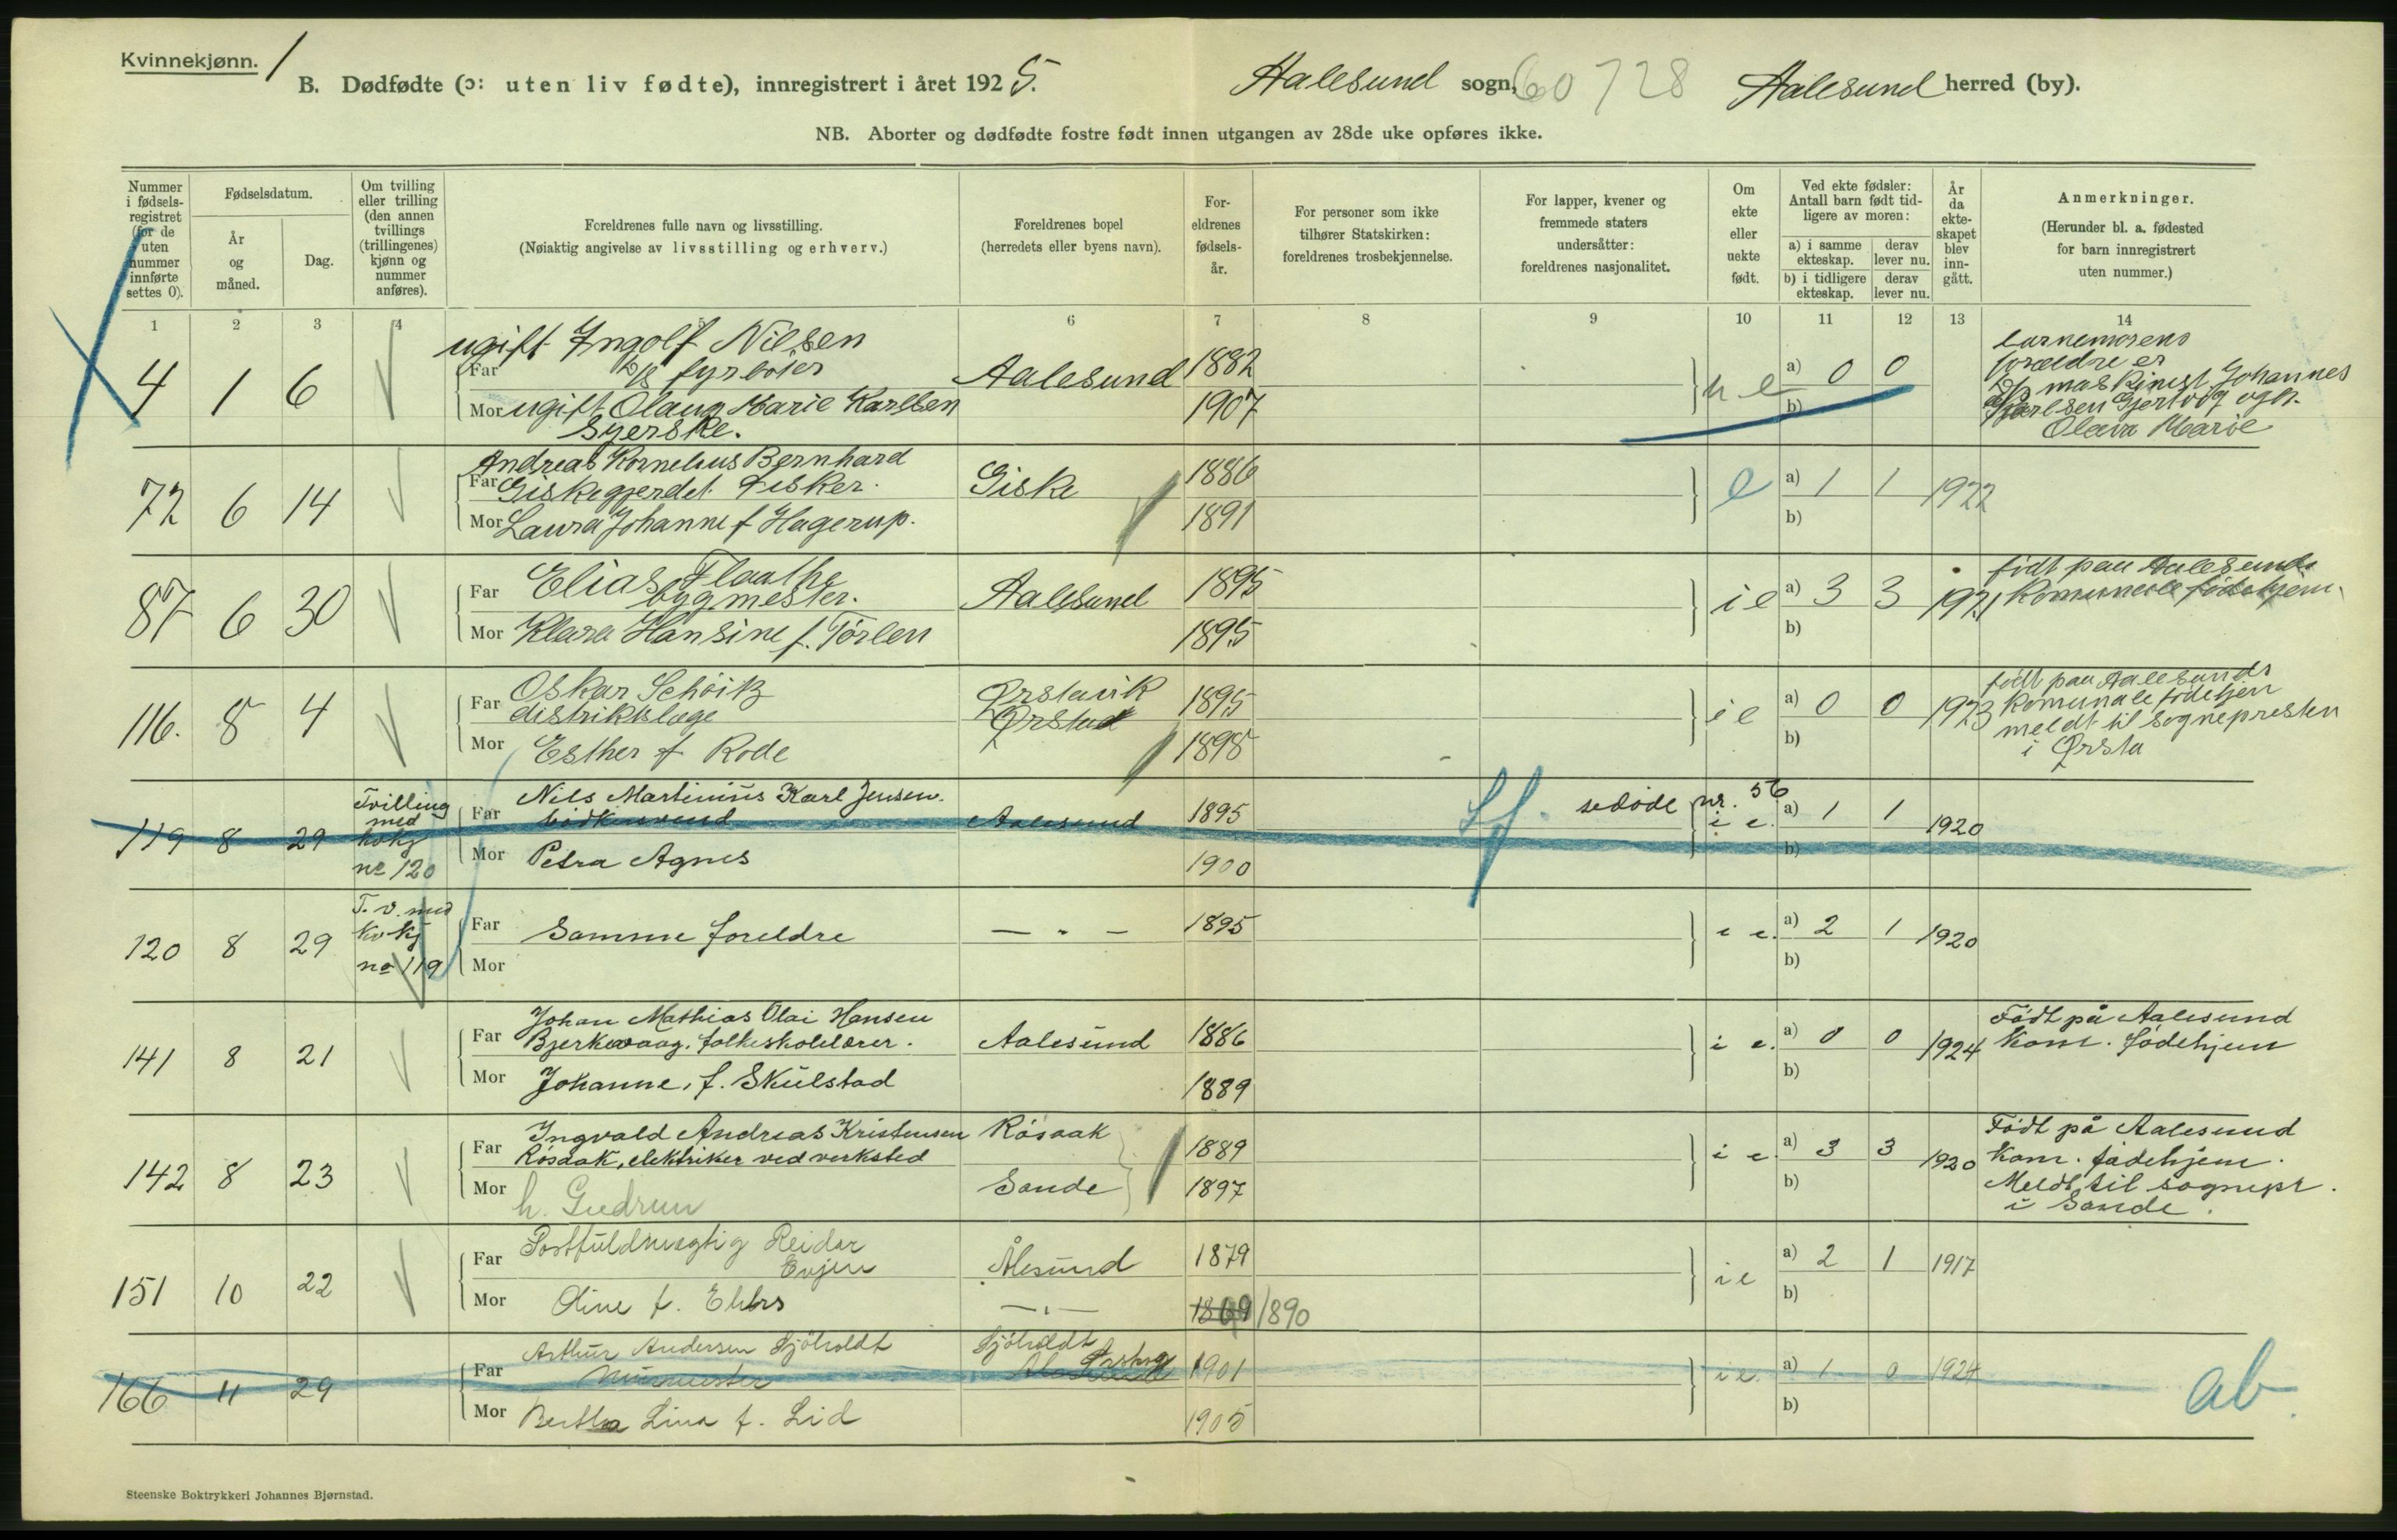 Kvinnekjønn. 1
B. Dødfødte (ɔ: uten liv fødte), innregistrert i året 1925. Aalesund sogn, 60728 Aalesund herred (by).
NB. Aborter og dødfødte fostre født innen utgangen av 28de uke opføres ikke.
Nummer i fødsels-registret (for de uten nummer innførte settes 0).
Fødselsdatum.
År og måned.
Dag.
Om tvilling eller trilling (den annen tvillings (trillingenes) kjønn og nummer anføres).
Foreldrenes fulle navn og livsstilling.
(Nøiaktig angivelse av livsstilling og erhverv.)
Foreldrenes bopel
(herredets eller byens navn).
For-eldrenes fødsels-år.
For personer som ikke tilhører Statskirken: foreldrenes trosbekjennelse.
For lapper, kvener og fremmede staters undersåtter: foreldrenes nasjonalitet.
Om ekte eller uekte født.
Ved ekte fødsler: Antall barn født tid-ligere av moren:
a) i samme ekteskap. derav lever nu.
b) i tidligere ekteskap. derav lever nu.
År da ekte-skapet blev inn-gått.
Anmerkninger.
(Herunder bl. a. fødested for barn innregistrert uten nummer.)
1 2 3 4 5 6 7 8 9 10 11 12 13 14
4 1 6 ugift Ingolf Nilsen
Far fyrbøter Aalesund 1882 a) 0 0
Mor ugift Olaug Marie Karlsen 1907 b)
Syerske.
barnemorens
forældre er
maskinist Johannes
Karlsen Gjertvog og h.
Olava Marie
72 6 14 Andreas Kornelius Bernhard
Far Giskegjerdet fisker. Giske 1886 e a) 1 1 1922
Mor Laura Johanne f Hagerup. 1891 b)
87 6 30 Far Elias Flaathe
bygmester. Aalesund 1895 i e a) 3 3 1921
Mor Klara Hansine f. Tørlen 1895 b)
født paa Aalesunds
komunale fødehjem.
116. 8 4 Far Oskar Schöitz
distriktslæge Ørstavik
Ørsta 1895 i e a) 0 0 1923
Mor Esther f Rode 1898 b)
født paa Aalesunds
komunale fødehjem
meldt til sognepresten
i Ørsta
119 8 29 Tvilling
med
kvkj
no 120
Far Nils Martinius Karl Jensen.
Aalesund 1895 se døde nr. 56
i e. a) 1 1 1920
Mor Petra Agnes 1900 b)
120 8 29 T. v. med
kvkj
no 119
Far Samme foreldre — " — 1895 i e. a) 2 1 1920
Mor b)
141 8 21 Johan Mathias Olai Hansen
Far Bjerkevaag, folkeskolelærer. Aalesund 1886 i e. a) 0 0 1924
Mor Johanne, f. Skulstad 1889 b)
Født på Aalesund
kom. fødehjem
142 8 23 Ingvald Andreas Kristensen Røsaak
Far Røsaak, elektriker ved verksted 1889 i e. a) 3 3 1920
Mor h. Gudrun Sande 1897 b)
Født på Aalesund
kom. fødehjem.
Meldt til sognepr.
i Sande.
151 10 22 Postfuldmægtig Reidar
Far Evjen Ålesund 1879 i e a) 2 1 1917
Mor Oline f. Ehlers — " — 1890 b)
166 11 29 Arthur Andersen Sjøholdt Sjøholdt
Far Ørskog 1901 i e. a) 1 0 1924
Mor Bertha Lina f. Lid 1905 b)
ab.
Steenske Boktrykkeri Johannes Bjørnstad.